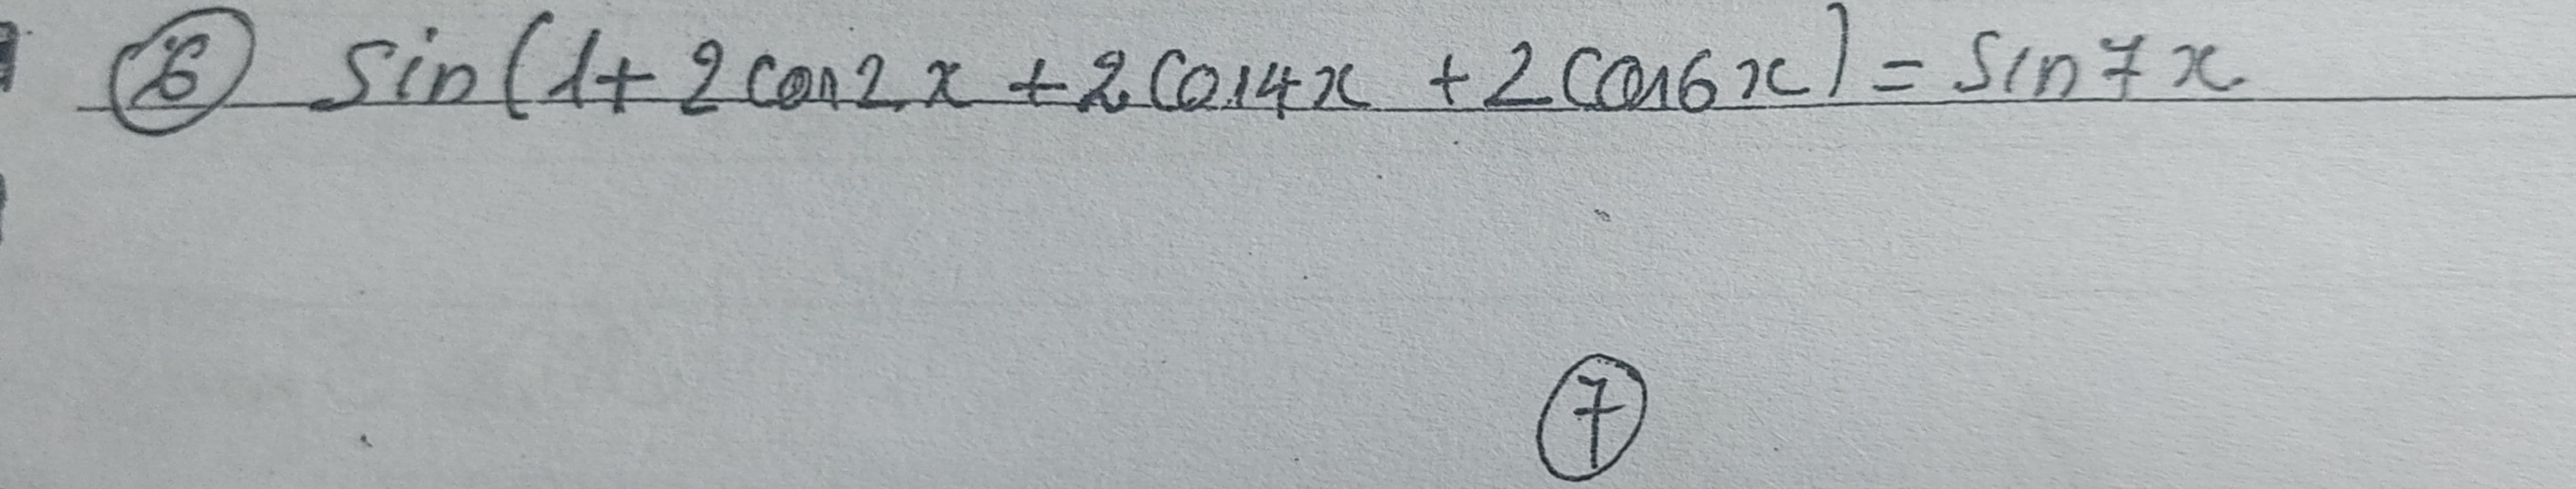 ⑥ sin(1+2cos2x+2cos4x+2cos6x)=sin7x
⑦